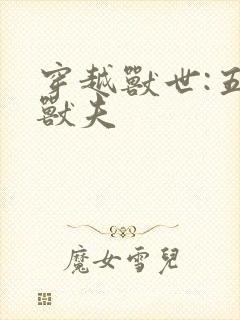 穿越獸世:五
獸夫
魔女雪兒